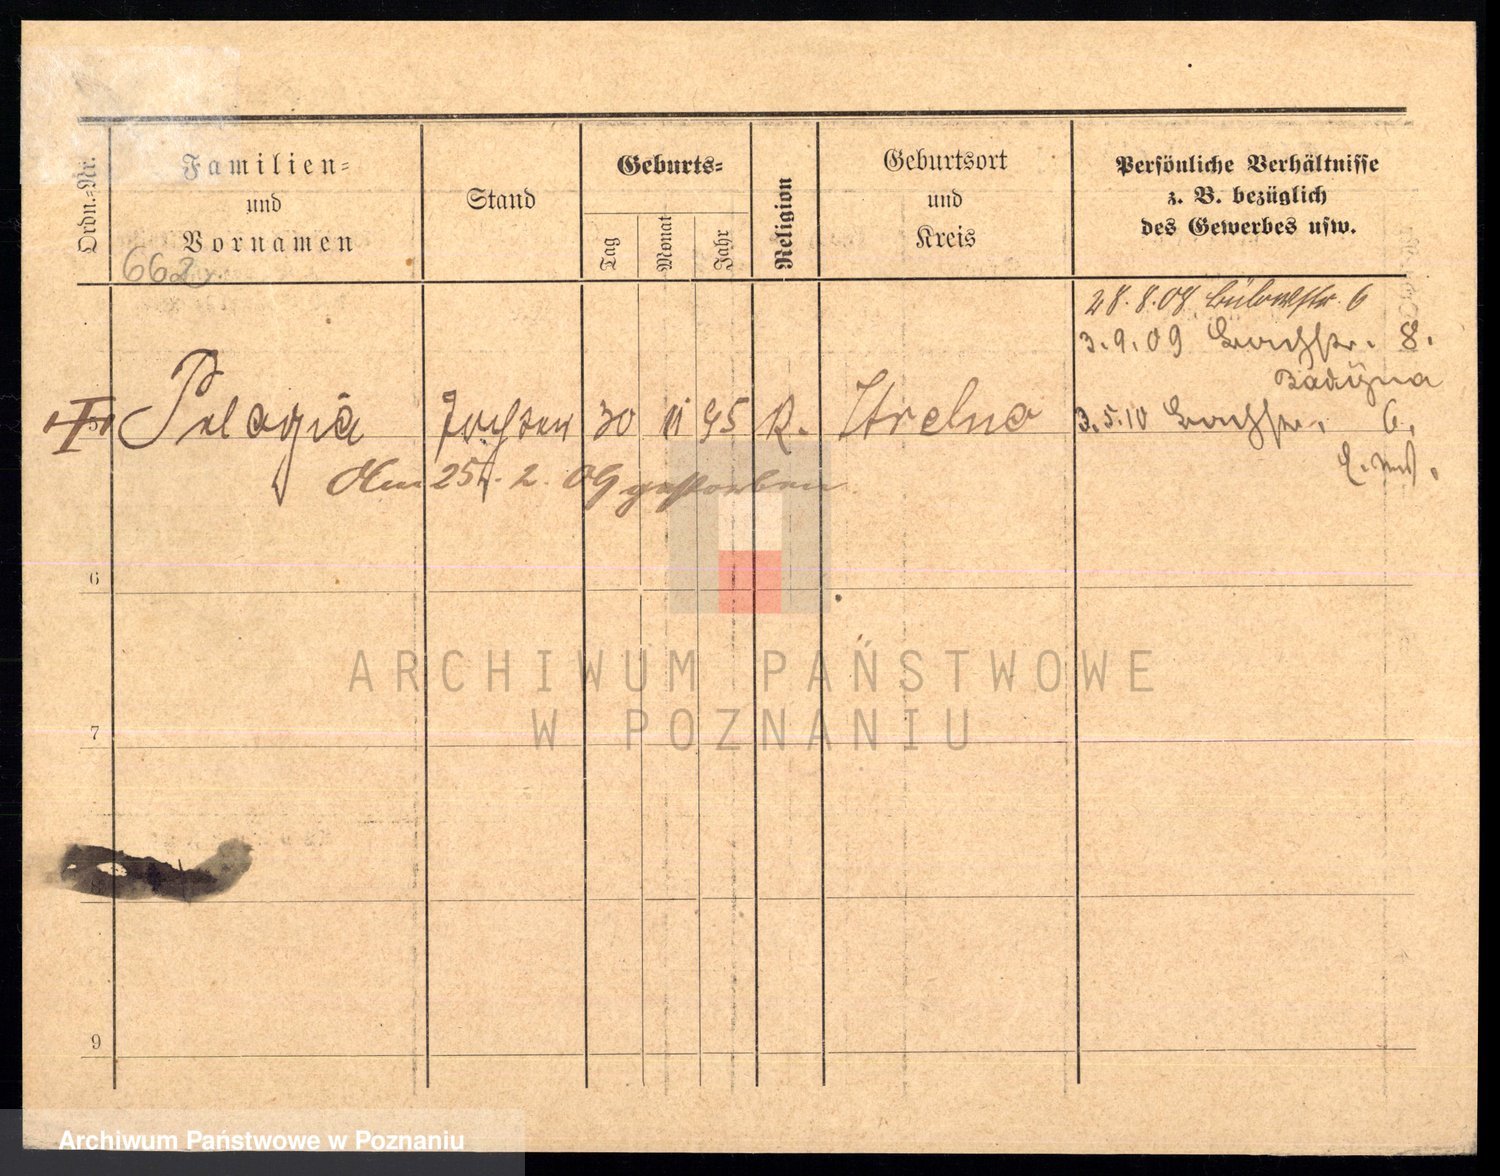 Ordn.-Nr.
Familien-
und
Vornamen
Stand
Geburts-
Tag
Monat
Jahr
Religion
Geburtsort
und
Kreis
Persönliche Verhältnisse
z. B. bezüglich
des Gewerbes usw.
662
28.8.08 Bülowstr. 6
3.9.09 8.
Pelagia Tochter 30 95 K. Strelno
3.5.10 6.
Am 25. 2. 09 gestorben
6
7
9
ARCHIWUM PAŃSTWOWE
W POZNANIU
Archiwum Państwowe w Poznaniu